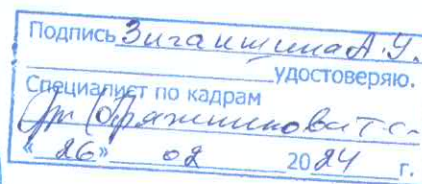 Подпись Зиганшина А.У.
удостоверяю.
Специалист по кадрам
«26» 02 2024 г.